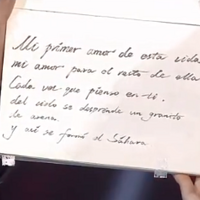 Mi primer amor de esta vida
mi amor para el resto de ella
Cada vez que pienso en ti,
del cielo se desprende un granito
de arena.
Y así se formó el Sáhara